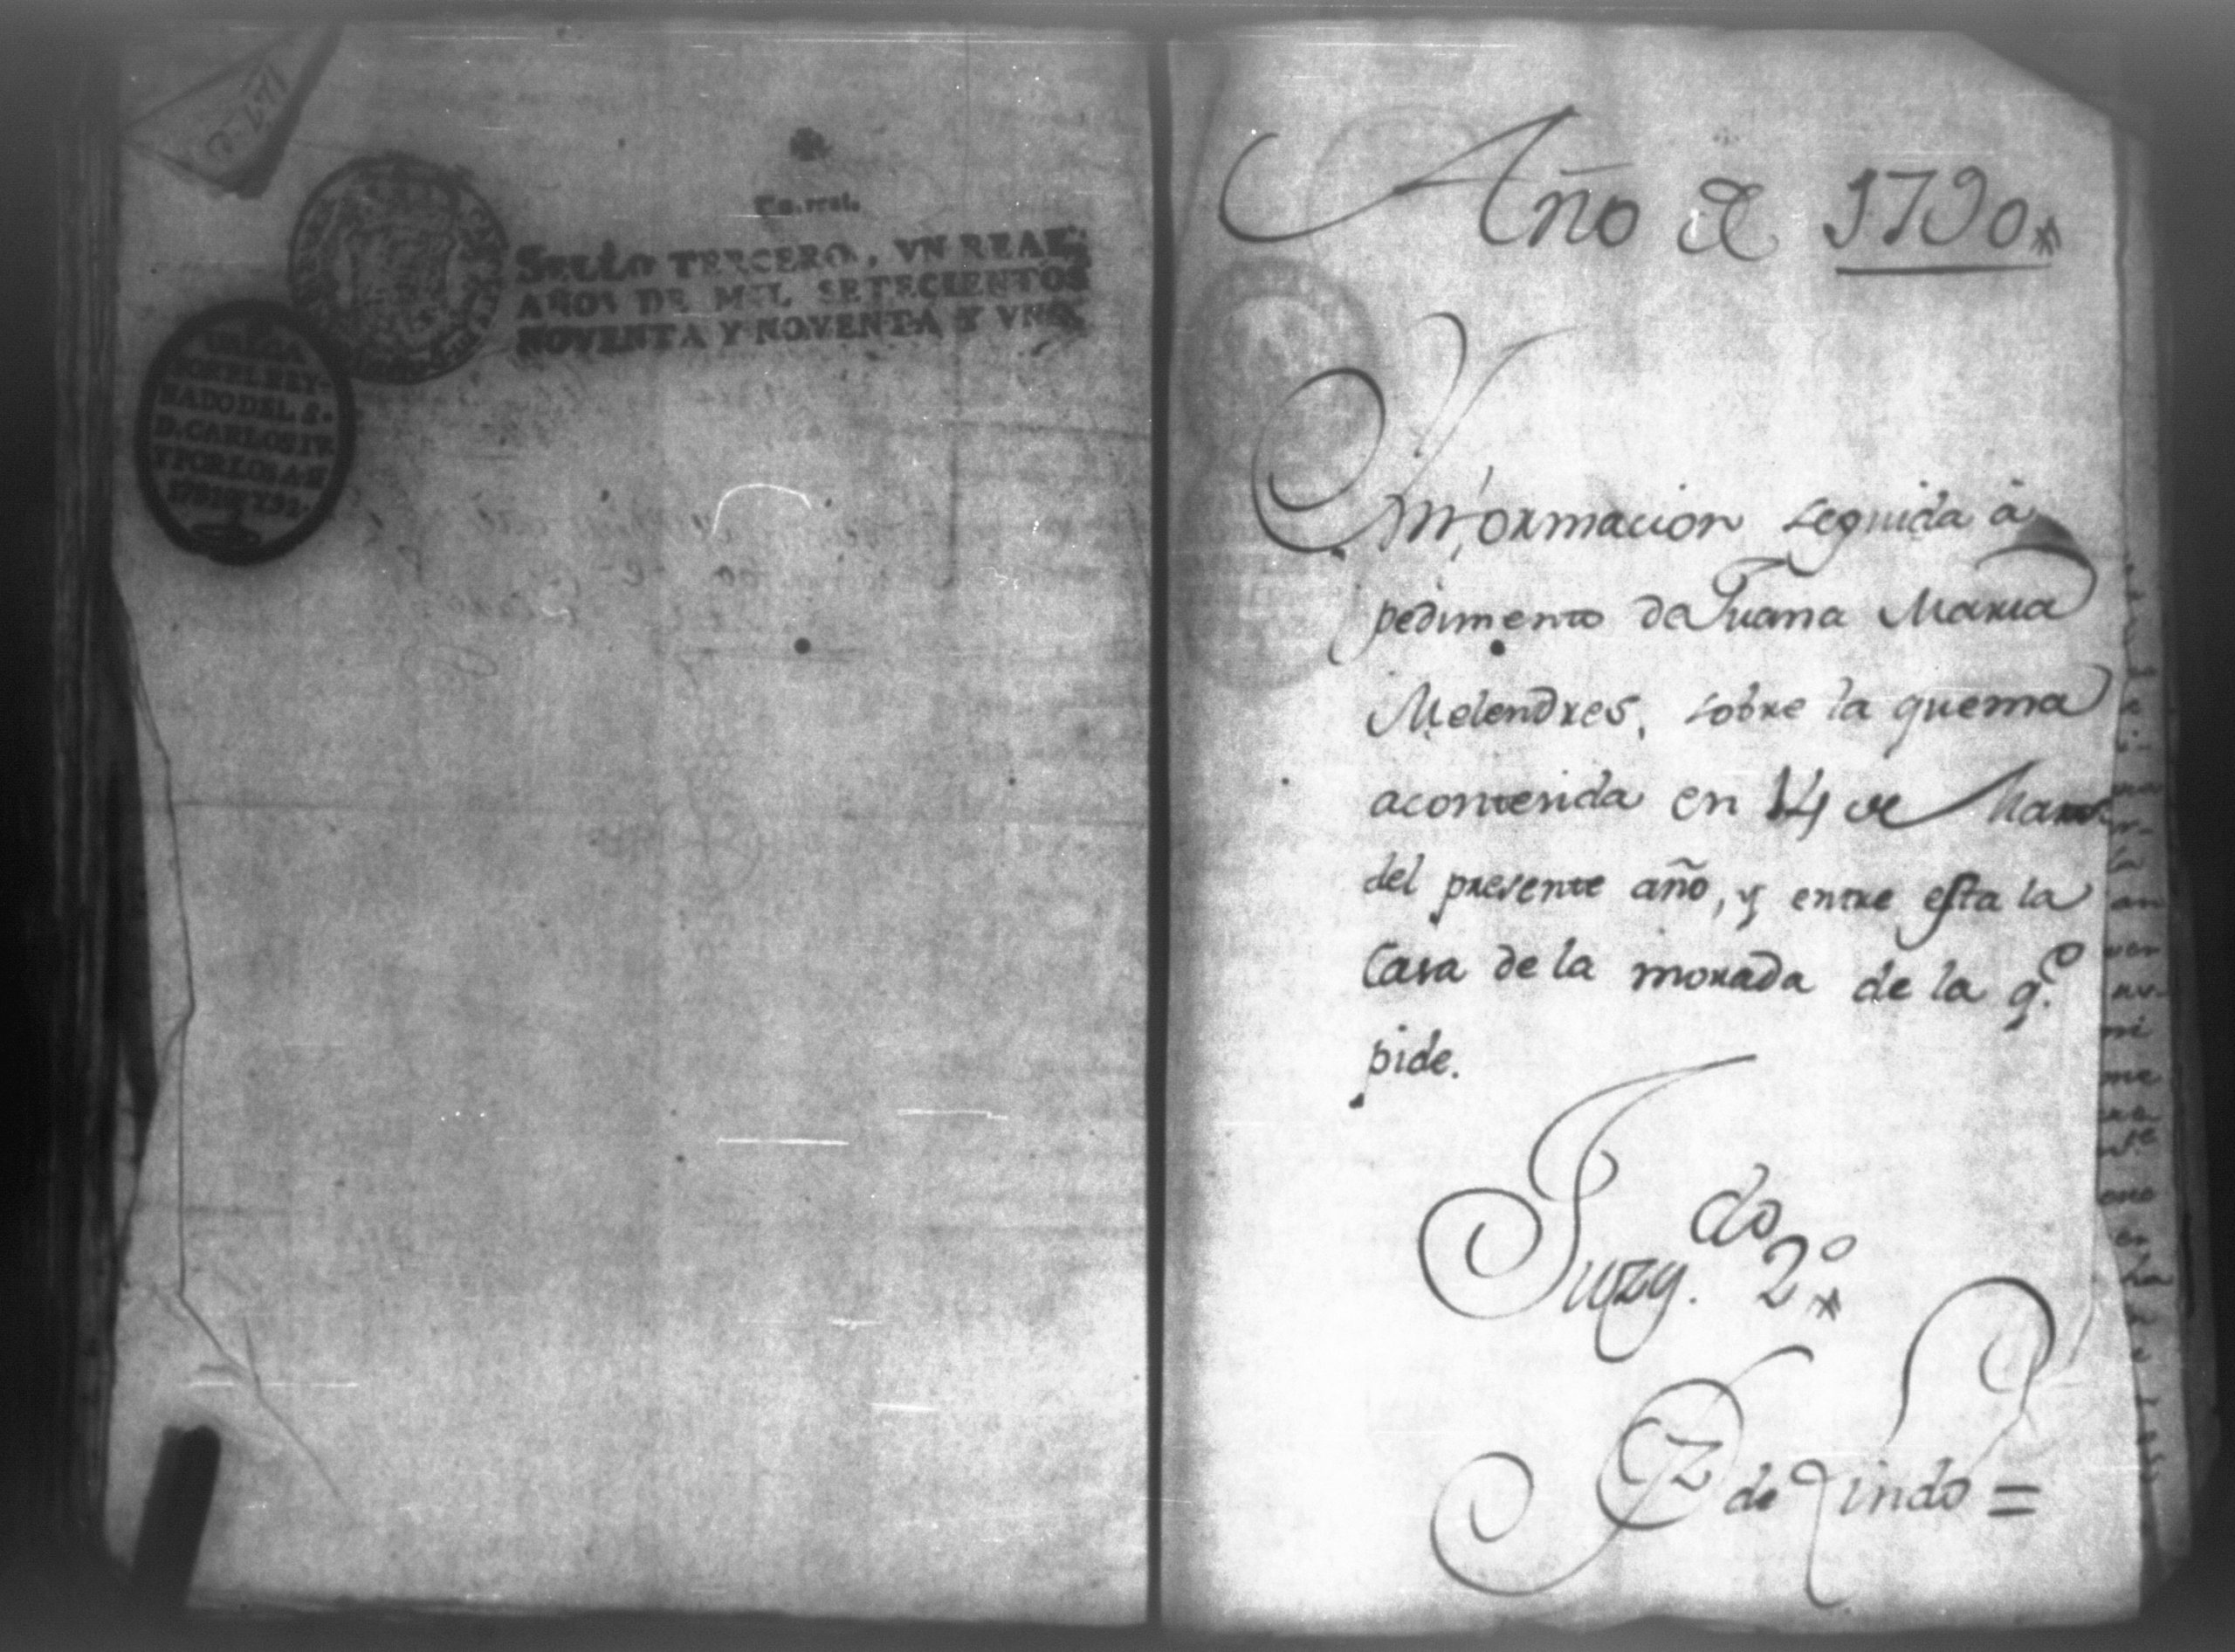 Un real.
SELLO TERCERO, VN REAL,
AÑOS DE MIL SETECIENTOS
NOVENTA Y NOVENTA Y VNO.
VALGA
POR EL REY-
NADO DEL S.
D. CARLOS IV.
Y POR LOS AS.
Año de 1790
Ynformacion seguida à
pedimento de Juana Maria
Melendres, sobre la quema
acontesida en 14 de Marzo
del presente año, y entre esta la
Casa de la morada de la q.e
pide.
Juzg.do 2º
de Lindo =